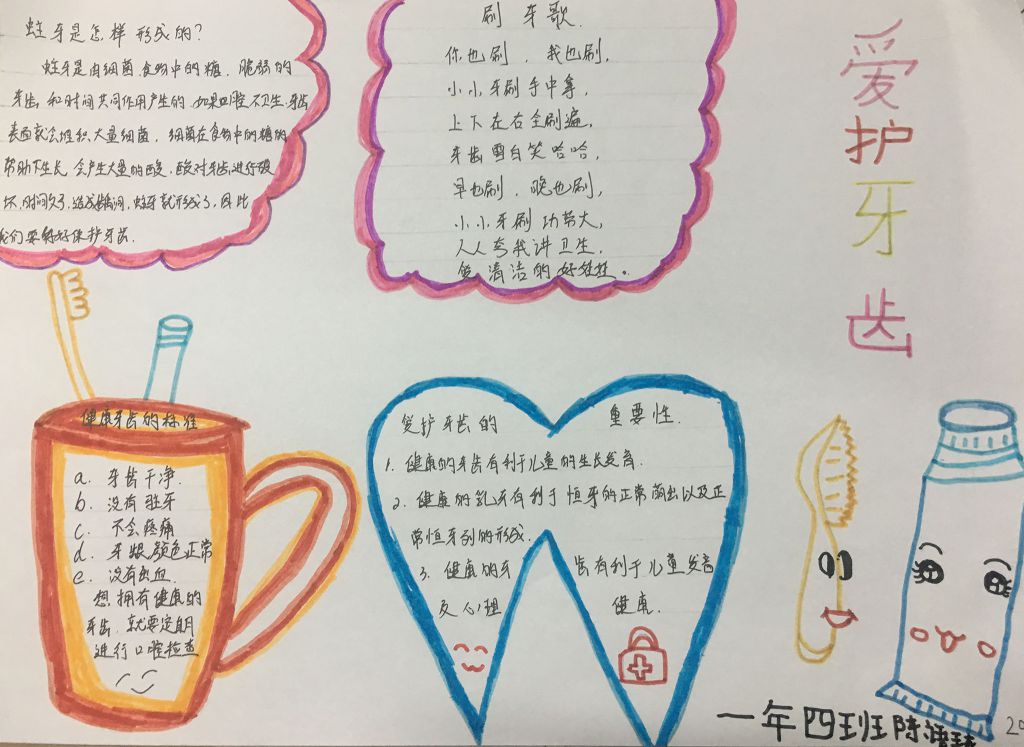 蛀牙是怎样形成的?
蛀牙是由细菌.食物中的糖.脆弱的
牙齿和时间共同作用产生的.如果口腔不卫生,牙齿
表面就会堆积大量细菌,细菌在食物中的糖的
帮助下生长,会产生大量的酸,酸对牙齿进行破
坏,时间久了,造成龋洞,蛀牙就形成了,因此
我们要好好保护牙齿.
刷牙歌.
你也刷,我也刷,
小小牙刷手中拿,
上下左右全刷遍,
牙齿雪白笑哈哈,
早也刷,晚也刷,
小小牙刷功劳大,
人人夸我讲卫生,
爱清洁的好娃娃。
爱护牙齿
健康牙齿的标准
a. 牙齿干净.
b. 没有蛀牙
c. 不会疼痛
d. 牙龈颜色正常
e. 没有出血.
想拥有健康的
牙齿.就要定期
进行口腔检查
爱护牙齿的重要性.
1.健康的牙齿有利于儿童的生长发育.
2.健康的乳牙有利于恒牙的正常萌出以及正
常恒牙列的形成.
3.健康的牙齿有利于儿童发音
及心理健康.
一年四班陈